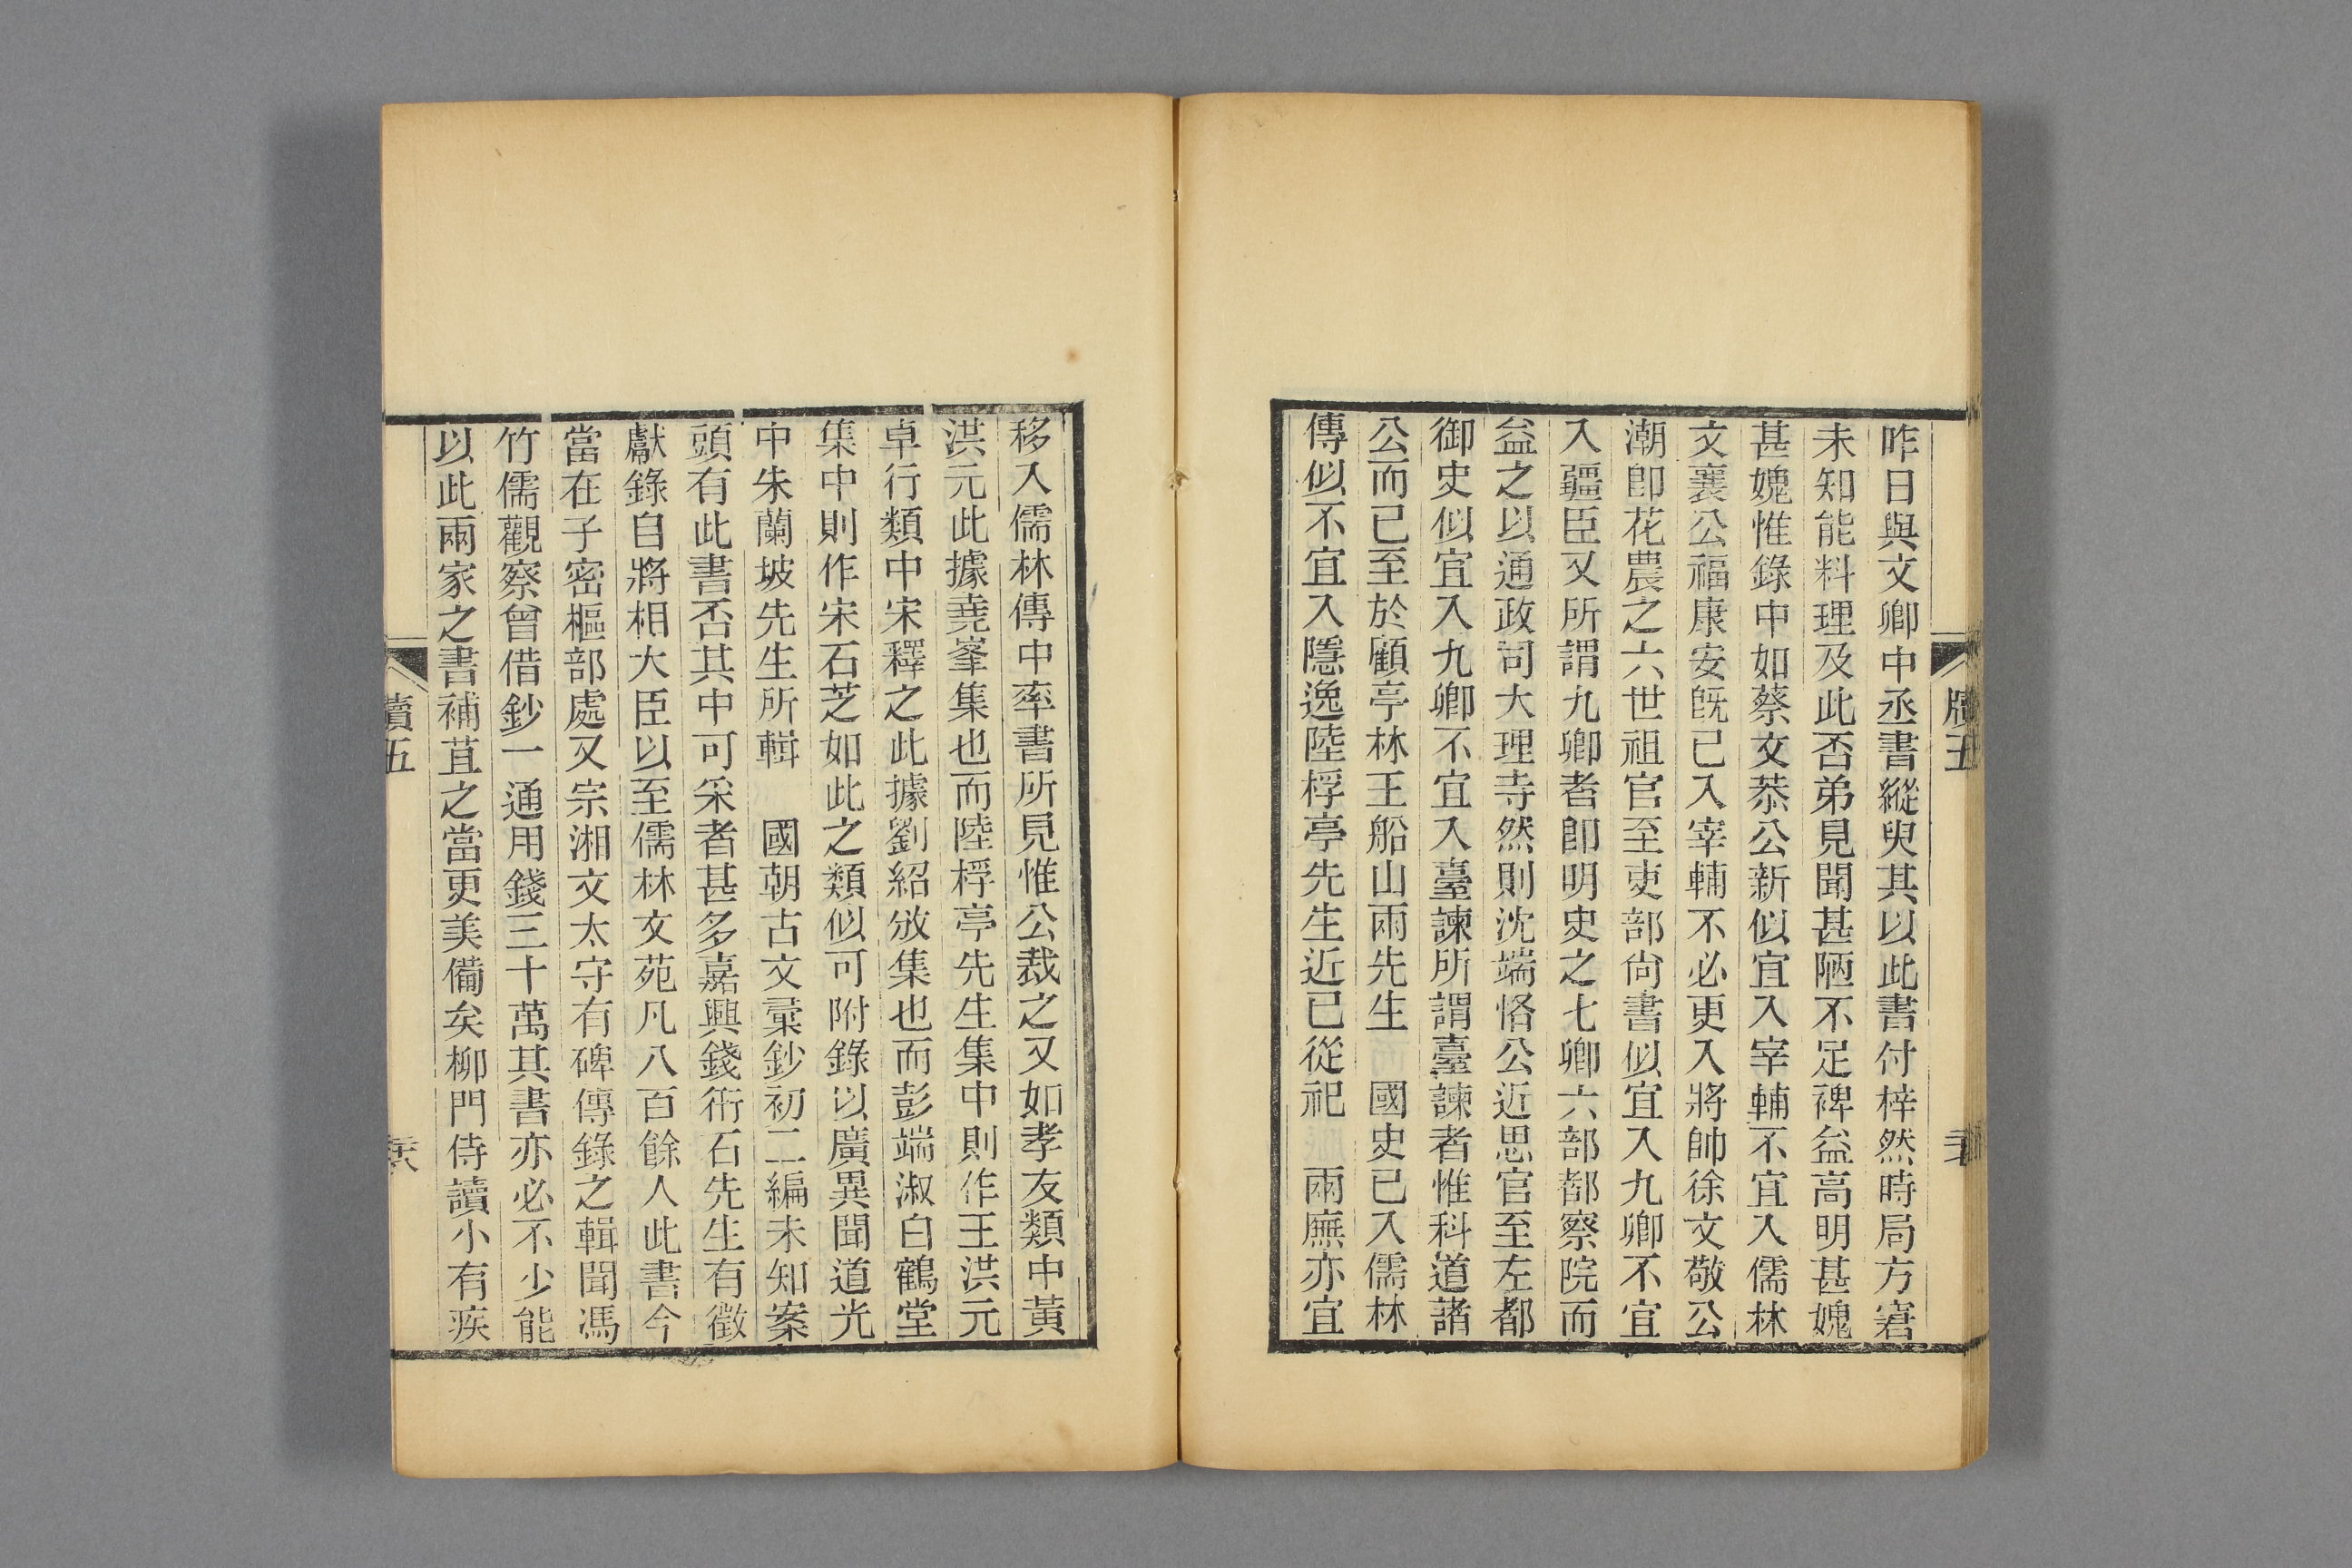 昨日與文卿中丞書縱臾其以此書付梓然時局方窘
未知能料理及此否弟見聞甚陋不足裨益高明甚媿
甚媿惟錄中如蔡文恭公新似宜入宰輔不宜入儒林
文襄公福康安旣已入宰輔不必更入將帥徐文敬公
潮卽花農之六世祖官至吏部尙書似宜入九卿不宜
入疆臣又所謂九卿者卽明史之七卿六部都察院而
益之以通政司大理寺然則沈端恪公近思官至左都
御史似宜入九卿不宜入臺諫所謂臺諫者惟科道諸
公而已至於顧亭林王船山兩先生　國史已入儒林
傳似不宜入隱逸陸桴亭先生近已從祀　兩廡亦宜
移入儒林傳中率書所見惟公裁之又如孝友類中黃
洪元此據堯峯集也而陸桴亭先生集中則作王洪元
卓行類中宋釋之此據劉紹攽集也而彭端淑白鶴堂
集中則作宋石芝如此之類似可附錄以廣異聞道光
中朱蘭坡先生所輯　國朝古文彙鈔初二編未知案
頭有此書否其中可采者甚多嘉興錢衎石先生有徵
獻錄自將相大臣以至儒林文苑凡八百餘人此書今
當在子密樞部處又宗湘文太守有碑傳錄之輯聞馮
竹儒觀察曾借鈔一通用錢三十萬其書亦必不少能
以此兩家之書補苴之當更美備矣柳門侍讀小有疾
牘五